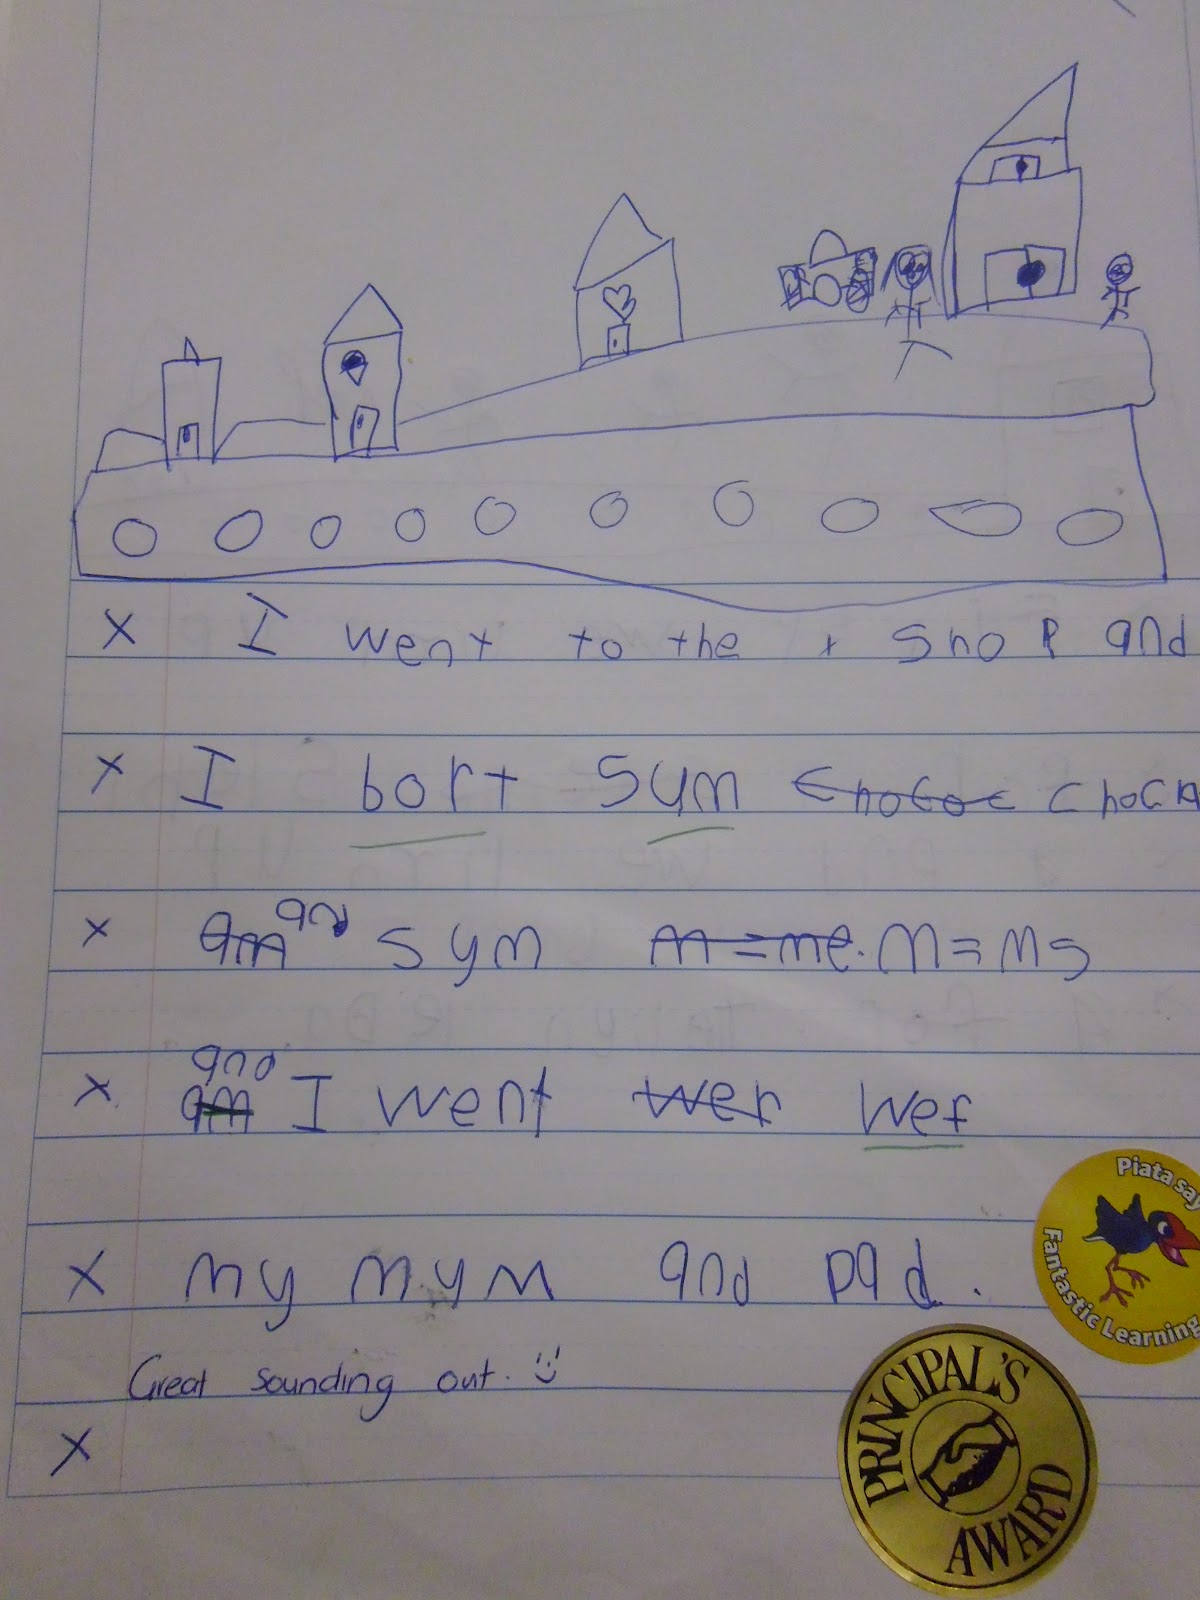 x I went to the t shop and
x I bort sum chococ choca
x am and sym m=me. m=ms
x and am I went wer wef
x my mym and pad.
Great sounding out.
x
Piata say
Fantastic Learning
PRINCIPAL'S
AWARD